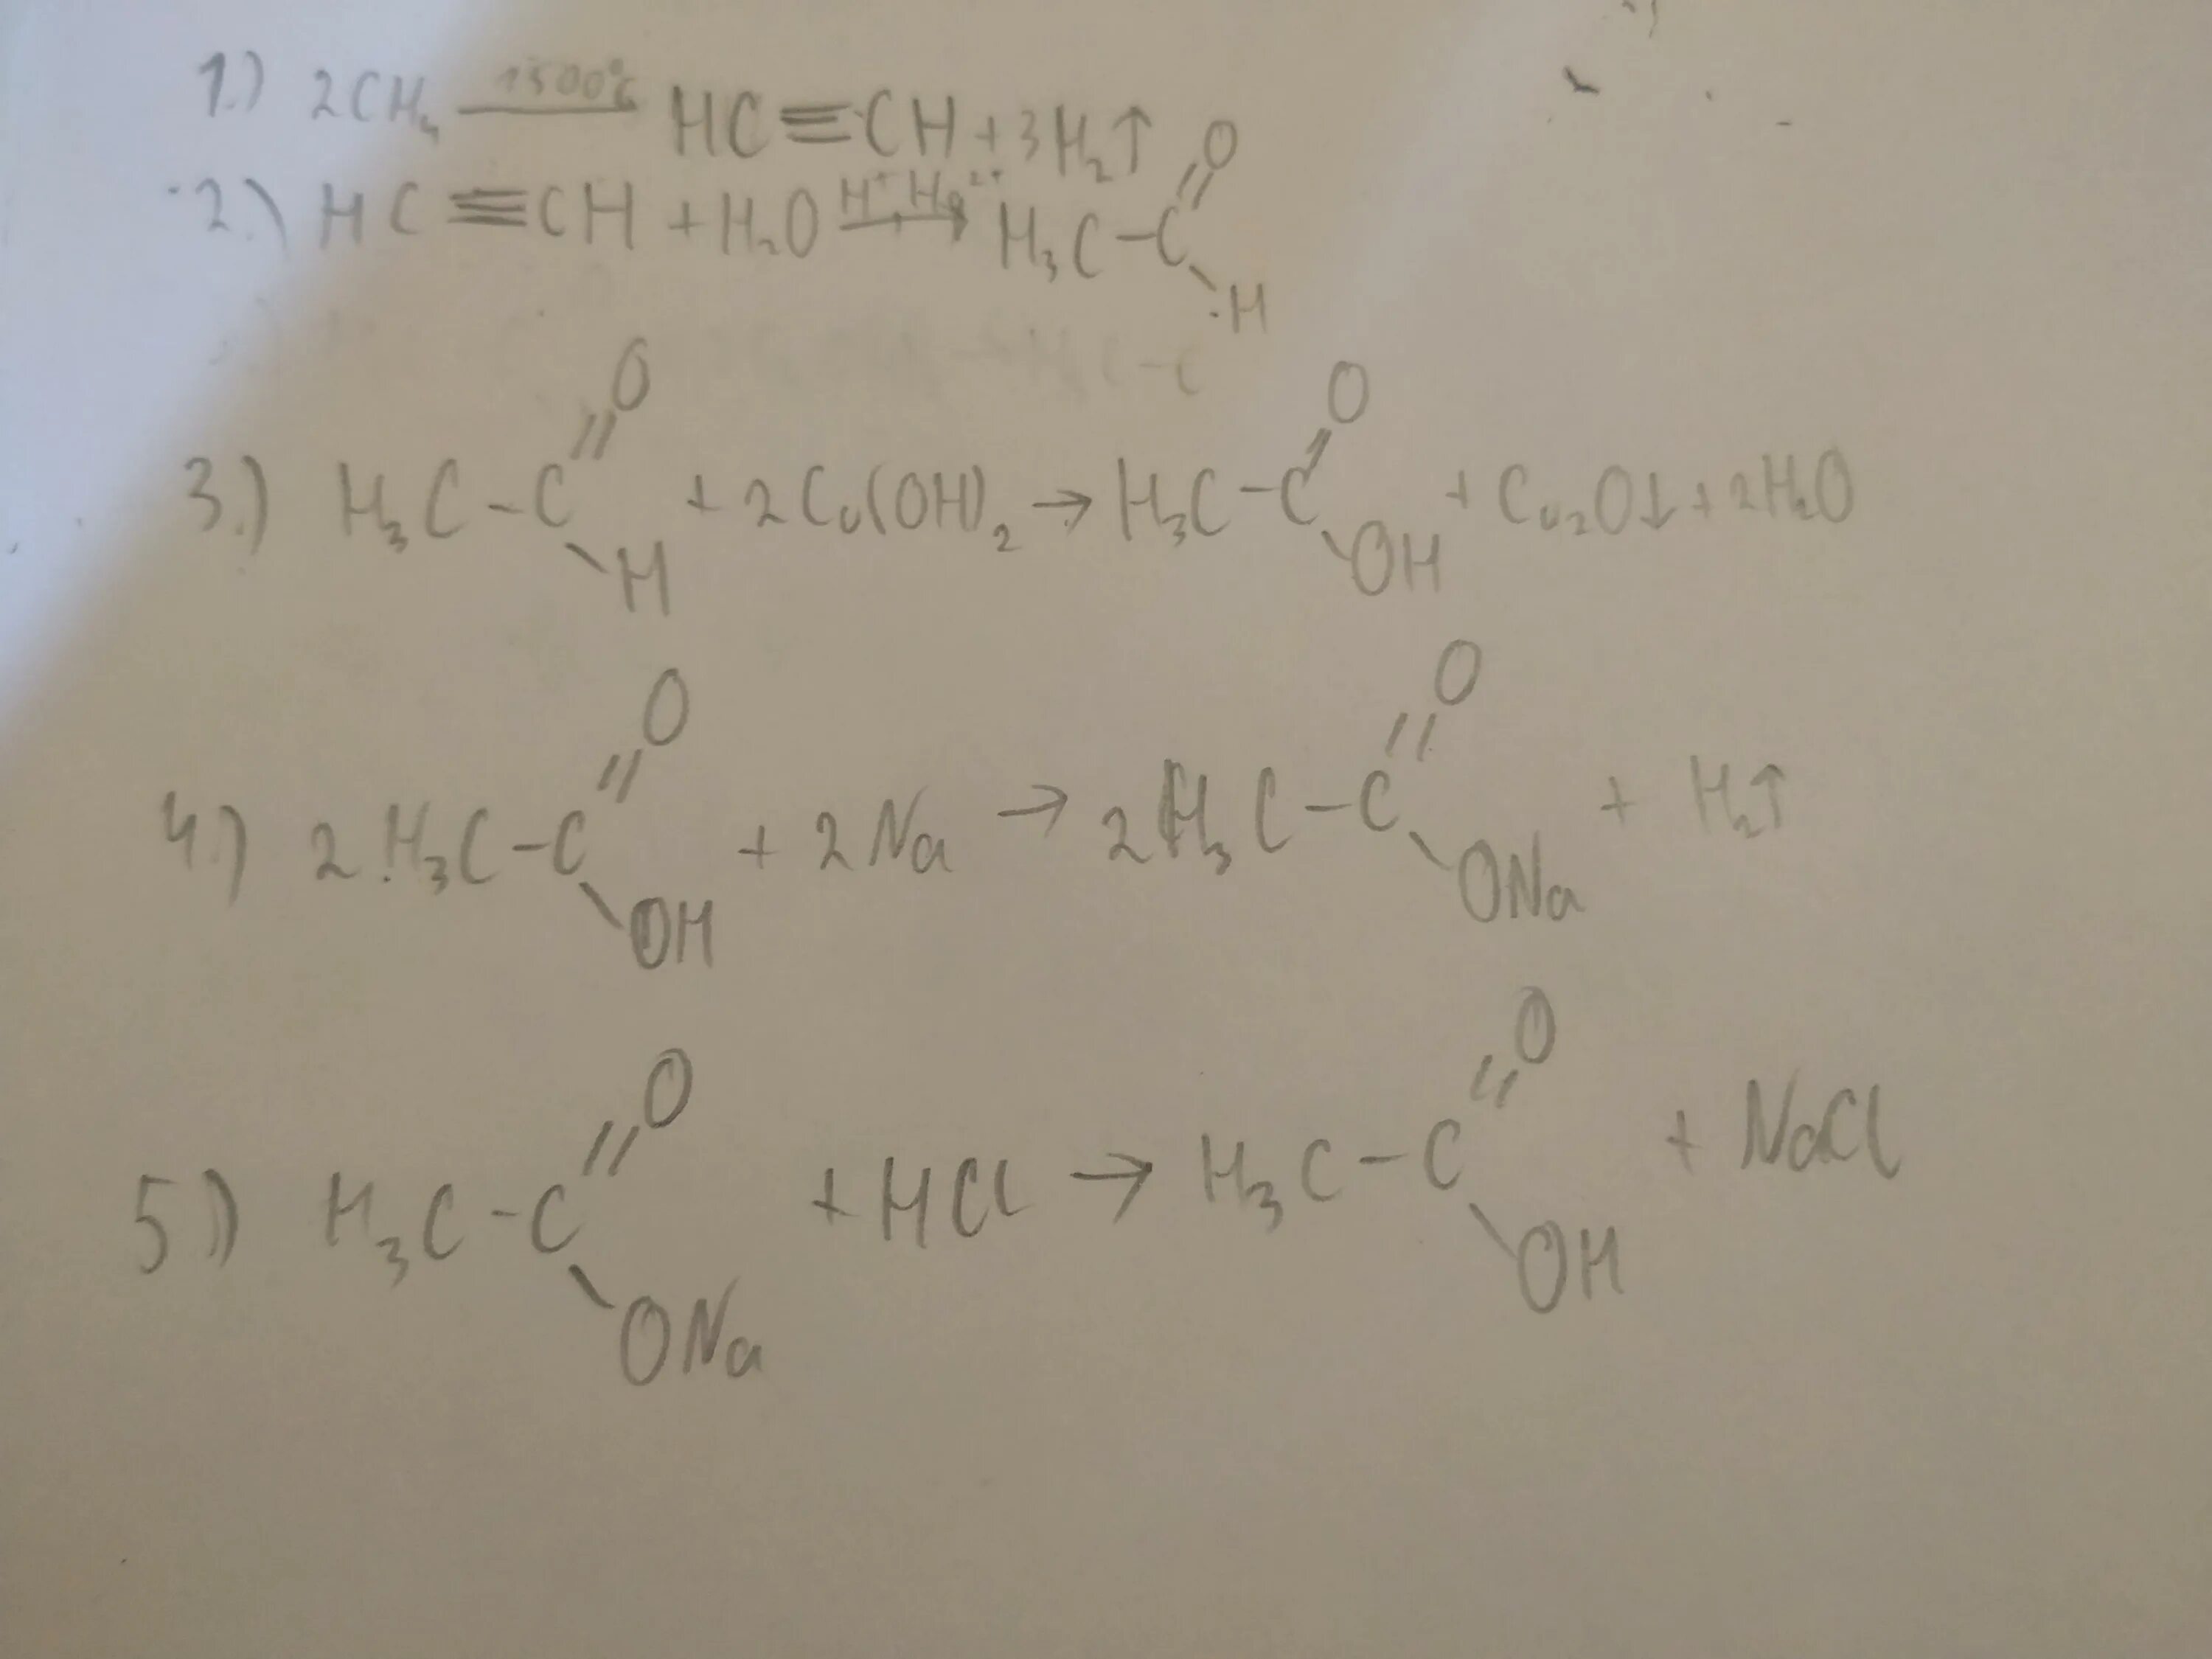 1.) 2CH₄ —1500°C— HC≡CH + 3H₂↑
2.) HC≡CH + H₂O —H⁺ Hg²⁺→ H₃C–C(=O)–H
3.) H₃C–C(=O)–H + 2Cu(OH)₂ → H₃C–C(=O)–OH + Cu₂O↓ + 2H₂O
4.) 2H₃C–C(=O)–OH + 2Na → 2H₃C–C(=O)–ONa + H₂↑
5.) H₃C–C(=O)–ONa + HCl → H₃C–C(=O)–OH + NaCl